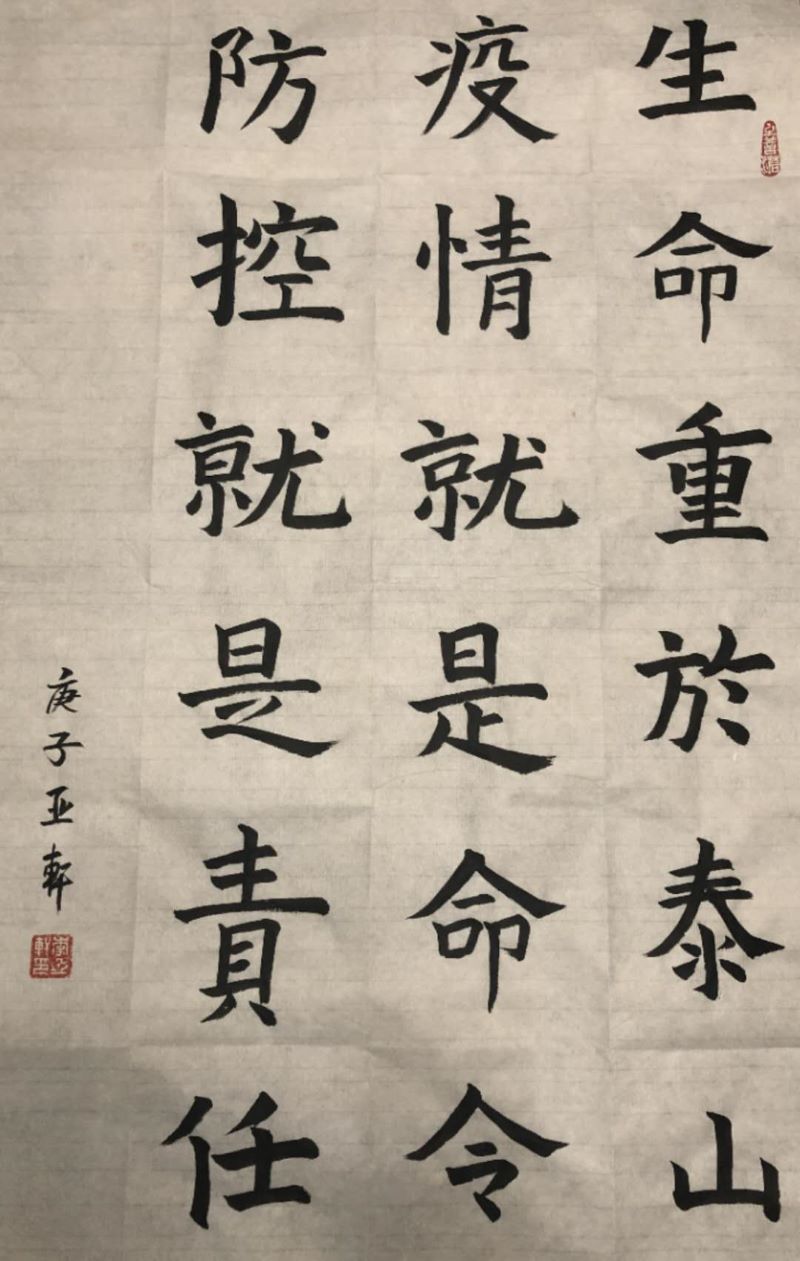 生命重於泰山
疫情就是命令
防控就是責任
庚子亚軒